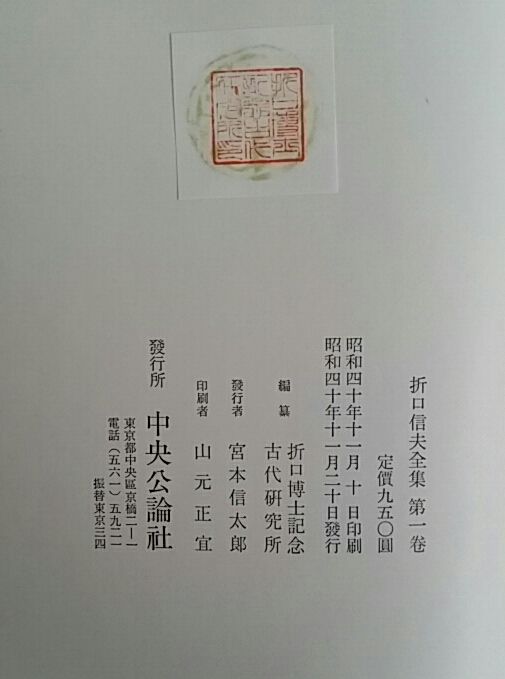 折口信夫全集 第一卷
定價九五〇圓
昭和四十年十一月 十 日印刷
昭和四十年十一月二十日發行
編纂 折口博士記念
古代研究所
發行者 宮本信太郎
印刷者 山元正宜
發行所 中央公論社
東京都中央區京橋二—一
電話（五六一）五九二一
振替東京三四